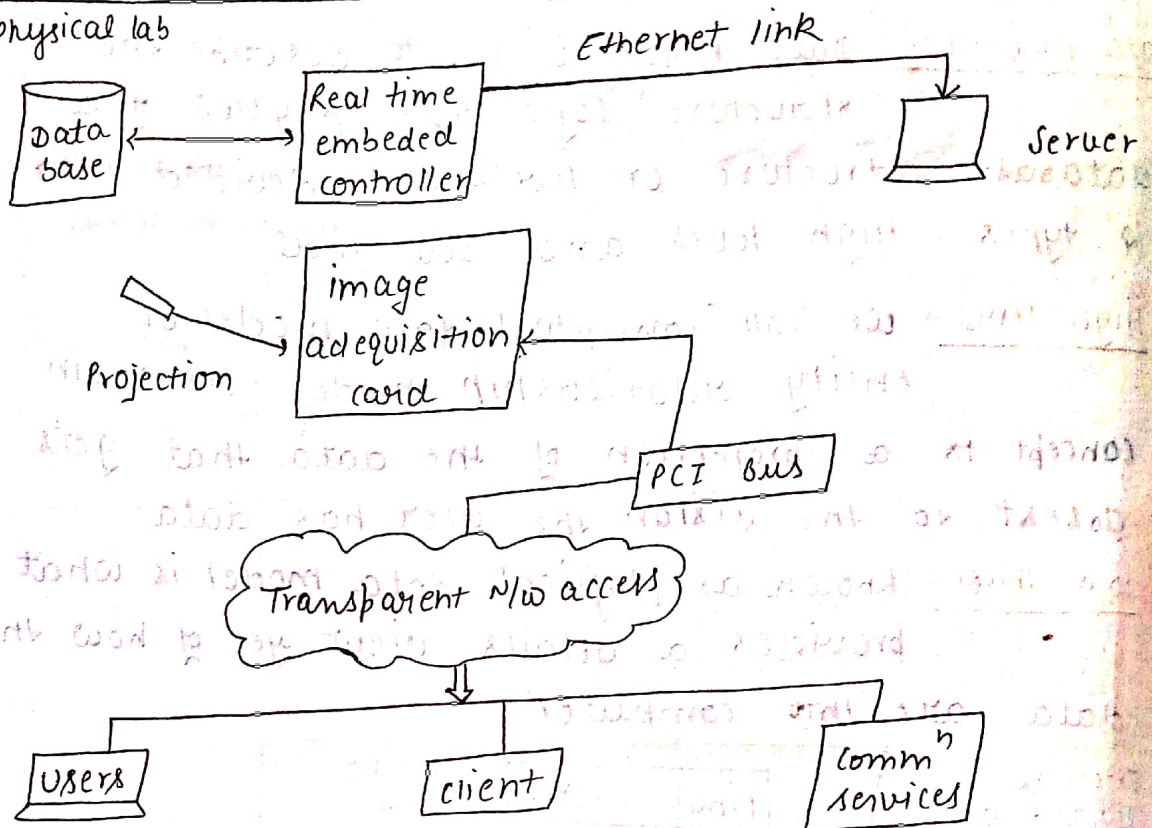 physical lab
Ethernet link
Data
base
Real time
embeded
controller
Server
image
adequisition
card
Projection
PCI Bus
Transparent N/w access
users
client
commⁿ
services